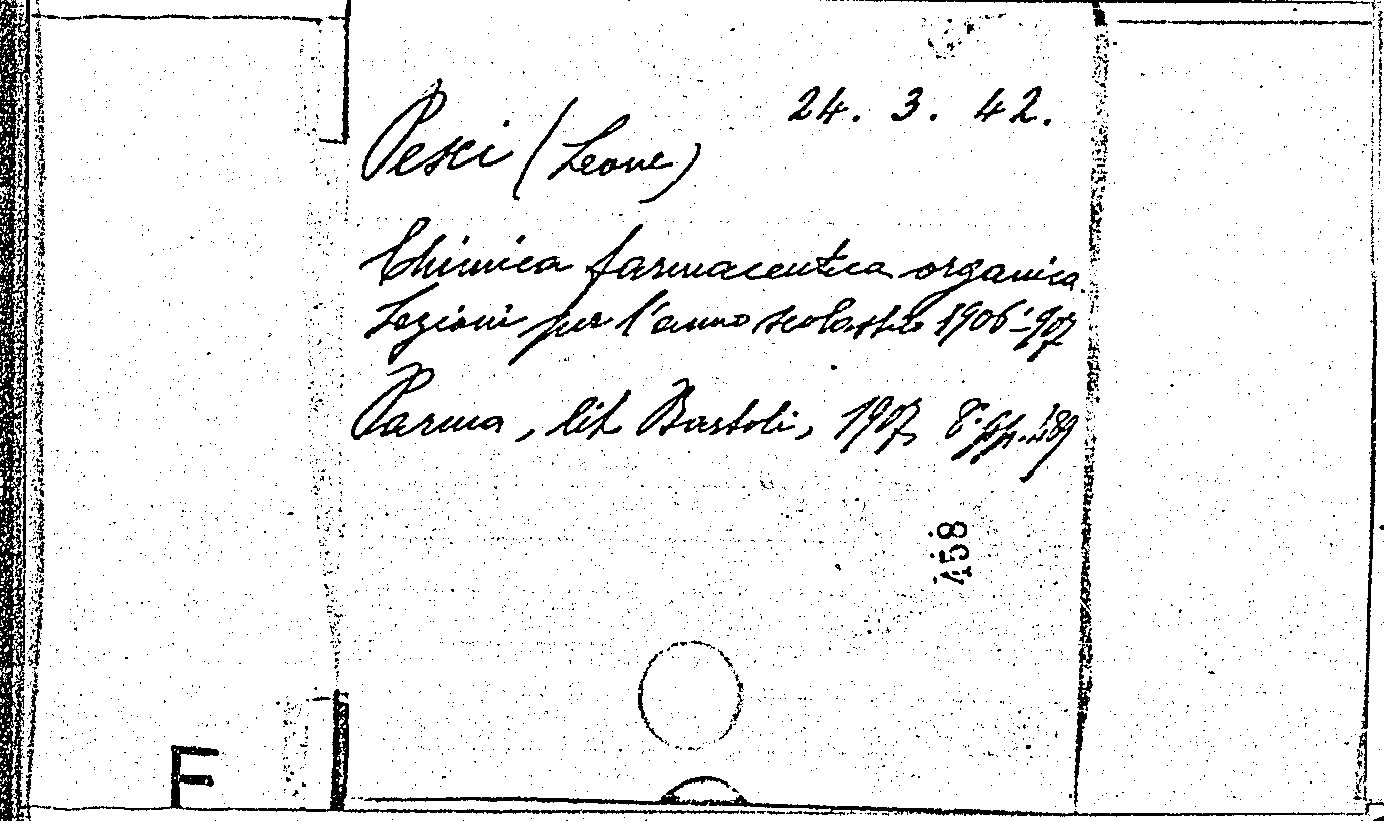 24. 3. 42.
Pesci (Leone)
Chimica farmaceutica organica.
Lezioni per l'anno scolastico 1906-907
Parma, lit. Bartoli, 1907, 8° pp.
458
F